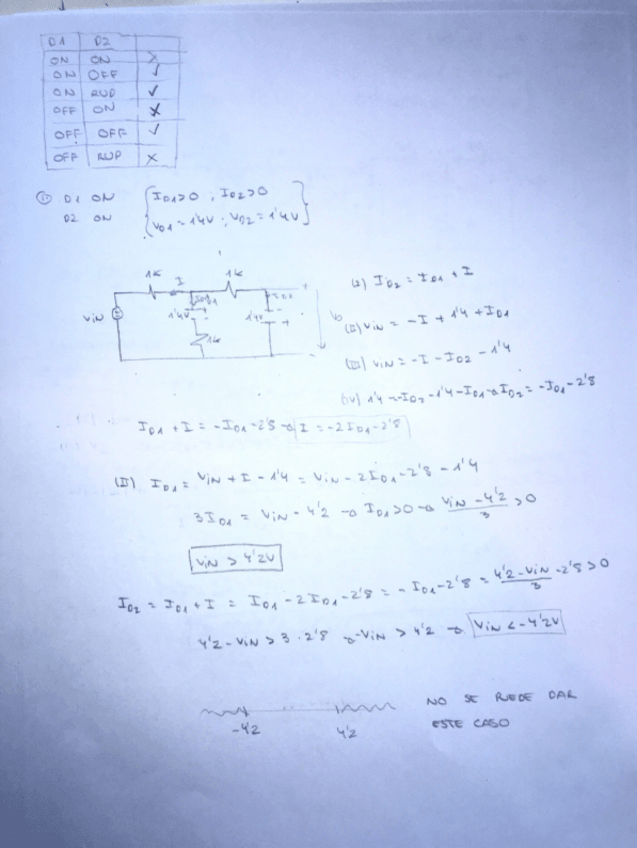 D1 D2
ON ON X
ON OFF ✓
ON RUP ✓
OFF ON X
OFF OFF ✓
OFF RUP X
① D1 ON { ID1>0 ; ID2>0
D2 ON VD1 = 1'4V ; VD2 = 1'4V }
1K I 1K
VIN 1'4V ID1 1'4V ID2 Vo
1K
(I) ID2 = ID1 + I
(II) VIN = -I + 1'4 + ID1
(III) VIN = -I - ID2 - 1'4
(IV) 1'4 = -ID2 - 1'4 - ID1 → ID2 = -ID1 - 2'8
ID1 + I = -ID1 - 2'8 → I = -2ID1 - 2'8
(II) ID1 = VIN + I - 1'4 = VIN - 2ID1 - 2'8 - 1'4
3ID1 = VIN - 4'2 → ID1 > 0 → (VIN - 4'2)/3 > 0
VIN > 4'2V
ID2 = ID1 + I = ID1 - 2ID1 - 2'8 = -ID1 - 2'8 = (4'2 - VIN)/3 - 2'8 > 0
4'2 - VIN > 3 · 2'8 → -VIN > 4'2 → VIN < -4'2V
-4'2 4'2
NO SE PUEDE DAR
ESTE CASO